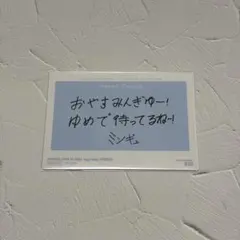 おやすみんぎゅー!
ゆめで待ってるねー!
ミンギュ